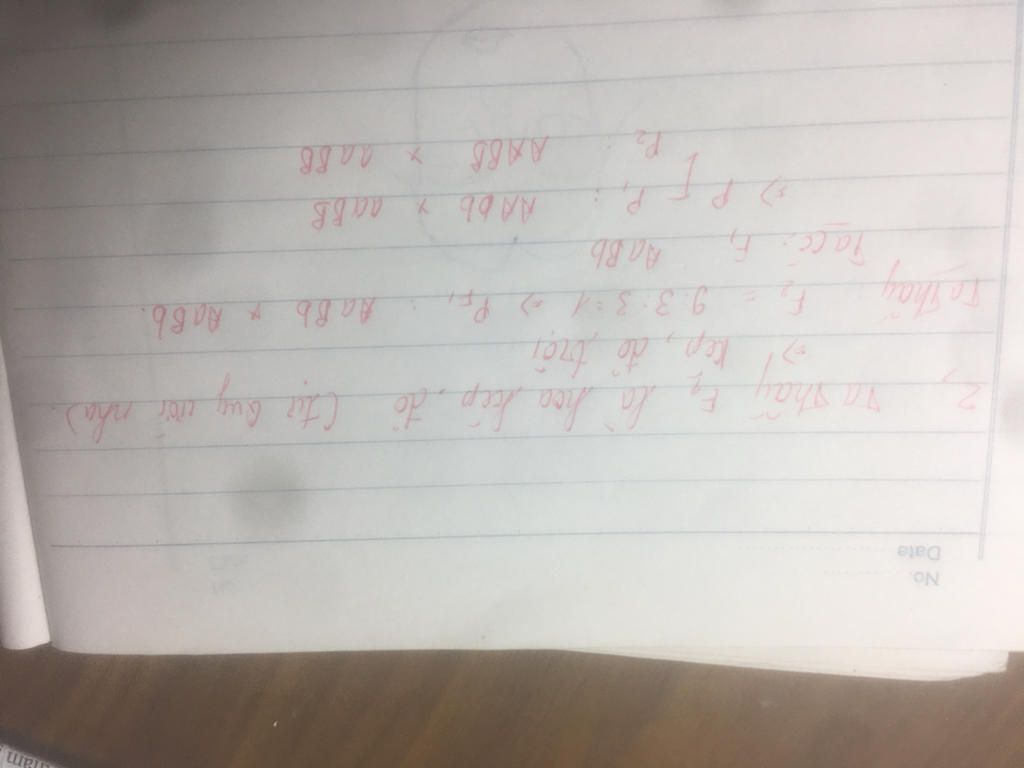 No.
Date
2, Ta thấy F2 là hoa kép, đỏ (tự quy ước nha).
=> kép, đỏ trội
Ta thấy: F2 = 9:3:3:1 => PF1 : AaBb x AaBb.
Ta có: F1 AaBb
=> P [ P1 : AAbb x aaBB
P2 : AABB x aaBB